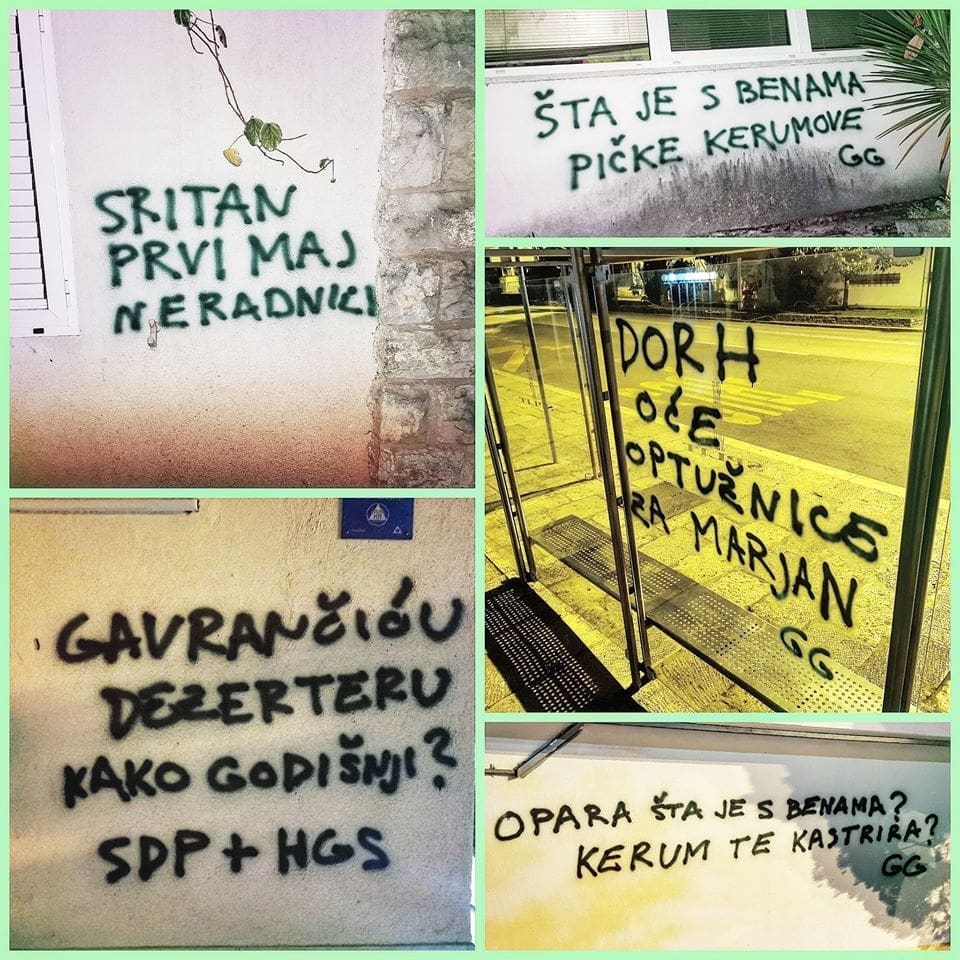 SRITAN
PRVI MAJ
NERADNICI
ŠTA JE S BENAMA
PIČKE KERUMOVE
GG
DORH
OĆE
OPTUŽNICE
ZA MARJAN
GG
GAVRANČIĆU
DEZERTERU
KAKO GODIŠNJI?
SDP + HGS
OPARA ŠTA JE S BENAMA?
KERUM TE KASTRIRA?
GG